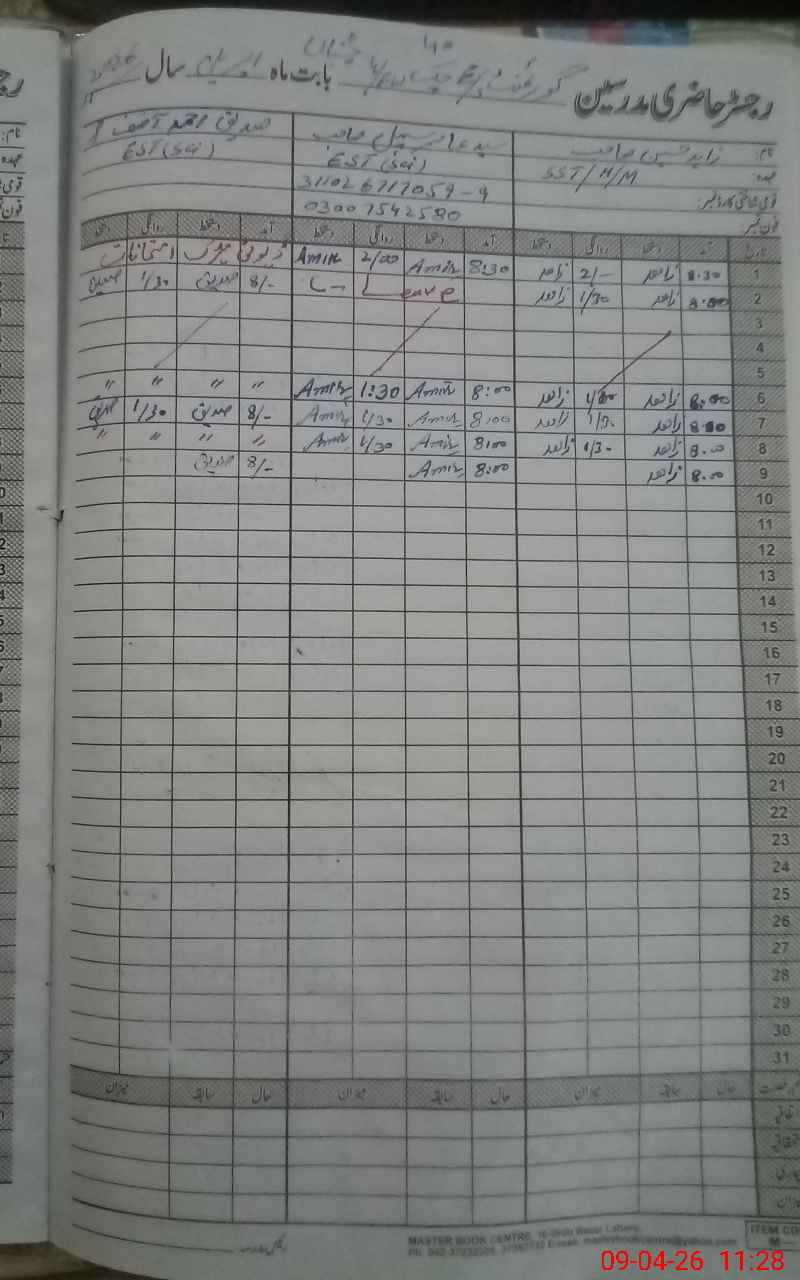 رجسٹر حاضری مدرسین گورنمنٹ بابت ماہ اپریل سال 2026
نام: زاہد حسین صاحب سید عامر سہیل صاحب صدیق احمد آصف
عہدہ: SST/M/M EST (Sci) EST (Sci)
قومی شناختی کارڈ نمبر: 31102 6717059-9
فون نمبر: 0300 7542580
تاریخ آمد دستخط روانگی دستخط آمد دستخط روانگی دستخط آمد دستخط روانگی دستخط
1 8.30 زاہد 2/- زاہد 8:30 Amir 2/00 Amir ڈیوٹی میٹرک امتحانات
2 8.00 زاہد 1/30 زاہد C- Leave 8/- صدیق 1/30 صدیق
3
4
5
6 8.00 زاہد 1/30 زاہد 8:00 Amir 1:30 Amir " " " "
7 8.00 زاہد 1/30 زاہد 8:00 Amir 1/30 Amir 8/- صدیق 1/30 صدیق
8 8.00 زاہد 1/30 زاہد 8:00 Amir 1/30 Amir " " " "
9 8.00 زاہد 8:00 Amir 8/- صدیق
10
11
12
13
14
15
16
17
18
19
20
21
22
23
24
25
26
27
28
29
30
31
حال سابقہ میزان حال سابقہ میزان حال سابقہ میزان
اتفاقی
بیماری
میزان
MASTER BOOK CENTRE, 16-Urdu Bazar Lahore.
ITEM CO
M—
09-04-26 11:28